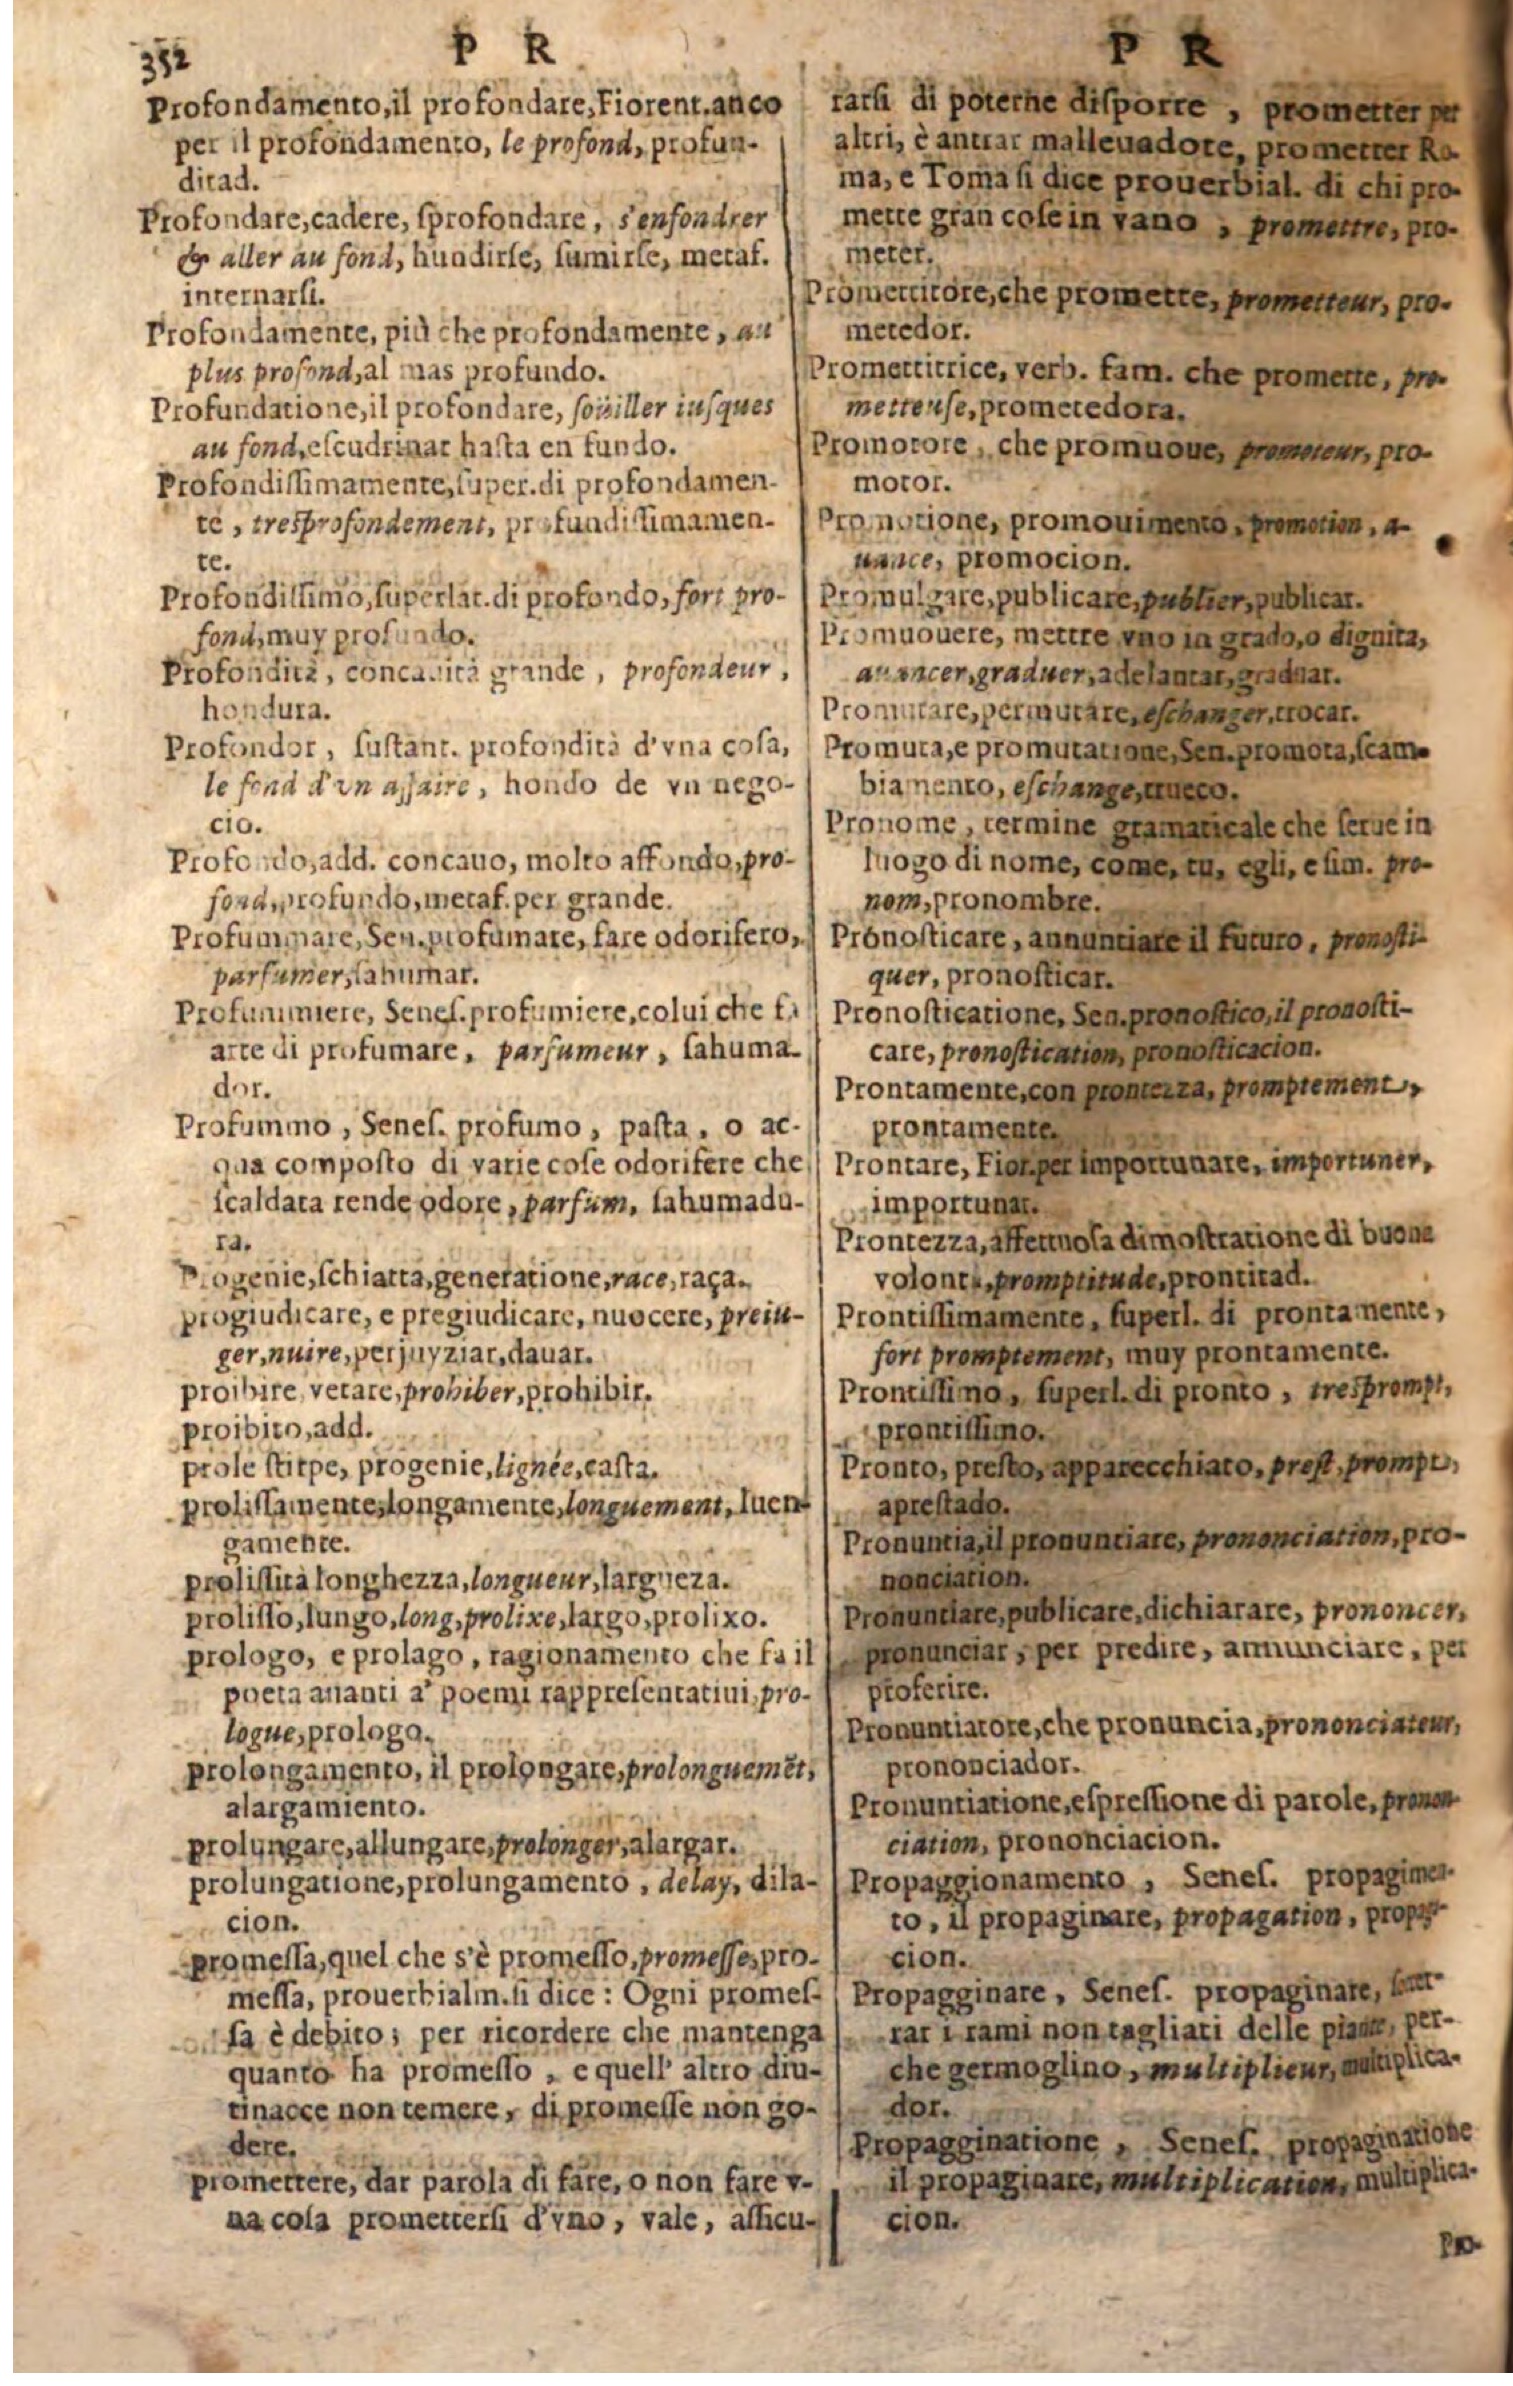 352
P R
Profondamento,il profondare,Fiorent.anco
per il profondamento, le profond, profun-
ditad.
Profondare,cadere, ſprofondare, s'enfondrer
& aller au fond, hundirſe, ſumirſe, metaf.
internarſi.
Profondamente, più che profondamente, au
plus profond,al mas profundo.
Profundatione,il profondare, ſoüiller iuſques
au fond,eſcudrinar haſta en fundo.
Profondiſſimamente,ſuper.di profondamen-
te, treſprofondement, profundiſſimamen-
te.
Profondiſſimo,ſuperlat.di profondo, fort pro-
fond,muy profundo.
Profondità, concauità grande, profondeur,
hondura.
Profondor, ſuſtant. profondità d'vna coſa,
le fond d'vn affaire, hondo de vn nego-
cio.
Profondo,add. concauo, molto affondo,pro-
fond,profundo,metaf.per grande.
Profummare, Sen.profumare, fare odorifero,
parfumer,ſahumar.
Profummiere, Seneſ.profumiere,colui che fa
arte di profumare, parfumeur, ſahuma-
dor.
Profummo, Seneſ. profumo, paſta, o ac-
qua compoſto di varie coſe odorifere che
ſcaldata rende odore, parfum, ſahumadu-
ra.
Progenie,ſchiatta,generatione,race,raça.
progiudicare, e pregiudicare, nuocere, preiu-
ger,nuire,perjuyziar,dauar.
proibire vetare,prohiber,prohibir.
proibito,add.
prole ſtirpe, progenie,lignée,caſta.
proliſſamente,longamente,longuement, luen-
gamente.
proliſſità longhezza,longueur,largueza.
proliſſo,lungo,long,prolixe,largo,prolixo.
prologo, e prolago, ragionamento che fa il
poeta auanti a' poemi rappreſentatiui,pro-
logue,prologo.
prolongamento, il prolongare,prolonguemēt,
alargamiento.
prolungare,allungare,prolonger,alargar.
prolungatione,prolungamento, delay, dila-
cion.
promeſſa,quel che s'è promeſſo,promeſſe,pro-
meſſa, prouerbialm.ſi dice: Ogni promeſ-
ſa è debito; per ricordere che mantenga
quanto ha promeſſo, e quell' altro diu-
tinacce non temere, di promeſſe non go-
dere.
promettere, dar parola di fare, o non fare v-
na coſa prometterſi d'vno, vale, aſſicu-
P R
rarſi di poterne diſporre, prometter per
altri, è antrar malleuadore, prometter Ro-
ma, e Toma ſi dice prouerbial. di chi pro-
mette gran coſe in vano, promettre, pro-
meter.
Promettitore,che promette, prometteur, pro-
metedor.
Promettitrice, verb. fam. che promette, pro-
metteuſe,prometedora.
Promotore, che promuoue, promoteur, pro-
motor.
Promotione, promouimento, promotion, a-
uance, promocion.
Promulgare,publicare,publier,publicar.
Promuouere, mettre vno in grado,o dignita,
auancer,graduer,adelantar,graduar.
Promutare,permutare,eſchanger,trocar.
Promuta,e promutatione,Sen.promota,ſcam-
biamento, eſchange,trueco.
Pronome, termine gramaticale che ſerue in
luogo di nome, come, tu, egli, e ſim. pro-
nom,pronombre.
Prònoſticare, annuntiare il futuro, pronoſti-
quer, pronoſticar.
Pronoſticatione, Sen.pronoſtico,il pronoſti-
care, pronoſtication, pronoſticacion.
Prontamente,con prontezza, promptement,
prontamente.
Prontare, Fior.per importunare, importuner,
importunar.
Prontezza,affettuoſa dimoſtratione di buona
volontà,promptitude,prontitad.
Prontiſſimamente, ſuperl. di prontamente,
fort promptement, muy prontamente.
Prontiſſimo, ſuperl. di pronto, treſprompt,
prontiſſimo.
Pronto, preſto, apparecchiato, preſt,prompt,
apreſtado.
Pronuntia,il pronuntiare, prononciation,pro-
nonciation.
Pronuntiare,publicare,dichiarare, prononcer,
pronunciar, per predire, annunciare, per
proferire.
Pronuntiatore,che pronuncia,prononciateur,
prononciador.
Pronuntiatione,eſpreſſione di parole,pronon-
ciation, prononciacion.
Propaggionamento, Seneſ. propagimen-
to, il propaginare, propagation, propag-
cion.
Propagginare, Seneſ. propaginare, ſoter-
rar i rami non tagliati delle piante, per-
che germoglino, multiplieur, multiplica-
dor.
Propagginatione, Seneſ. propaginatione
il propaginare, multiplication, multiplica-
cion.
Pro-